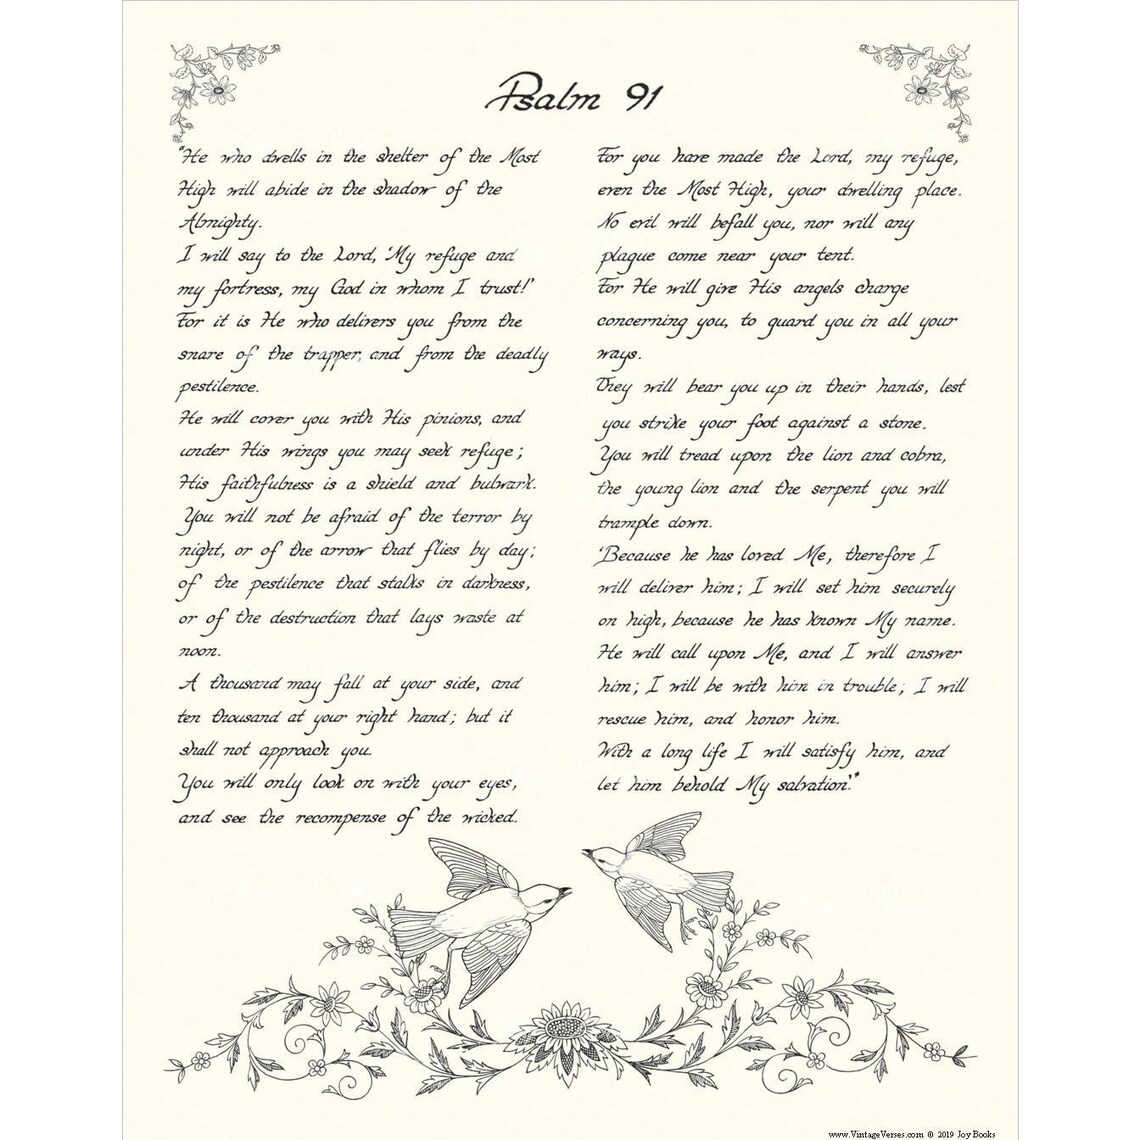 Psalm 91
"He who dwells in the shelter of the Most
High will abide in the shadow of the
Almighty.
I will say to the Lord, 'My refuge and
my fortress, my God in whom I trust!'
For it is He who delivers you from the
snare of the trapper, and from the deadly
pestilence.
He will cover you with His pinions, and
under His wings you may seek refuge;
His faithfulness is a shield and bulwark.
You will not be afraid of the terror by
night, or of the arrow that flies by day;
of the pestilence that stalks in darkness,
or of the destruction that lays waste at
noon.
A thousand may fall at your side, and
ten thousand at your right hand; but it
shall not approach you.
You will only look on with your eyes,
and see the recompense of the wicked.
For you have made the Lord, my refuge,
even the Most High, your dwelling place.
No evil will befall you, nor will any
plague come near your tent.
For He will give His angels charge
concerning you, to guard you in all your
ways.
They will bear you up in their hands, lest
you strike your foot against a stone.
You will tread upon the lion and cobra,
the young lion and the serpent you will
trample down.
'Because he has loved Me, therefore I
will deliver him; I will set him securely
on high, because he has known My name.
He will call upon Me, and I will answer
him; I will be with him in trouble; I will
rescue him, and honor him.
With a long life I will satisfy him, and
let him behold My salvation.'"
www.VintageVerses.com © 2019 Joy Books